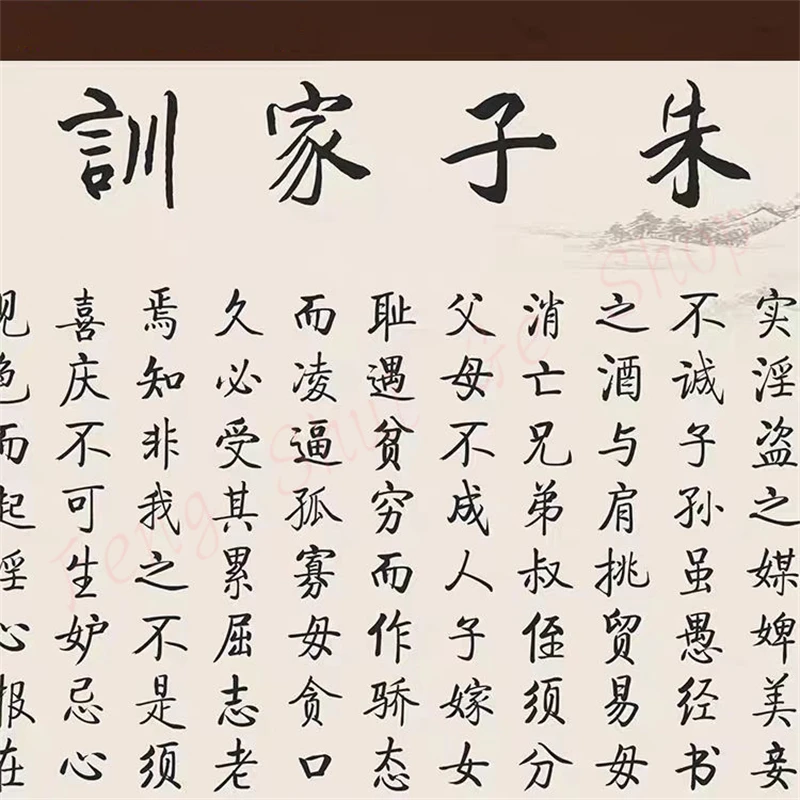 朱子家訓
实淫盗之媒婢美妾
不诚子孙虽愚经书
之酒与肩挑贸易毋
消亡兄弟叔侄须分
父母不成人子嫁女
耻遇贫穷而作骄态
而凌逼孤寡毋贪口
久必受其累屈志老
焉知非我之不是须
喜庆不可生妒忌心
色而起淫心报在
Feng Shui Shop